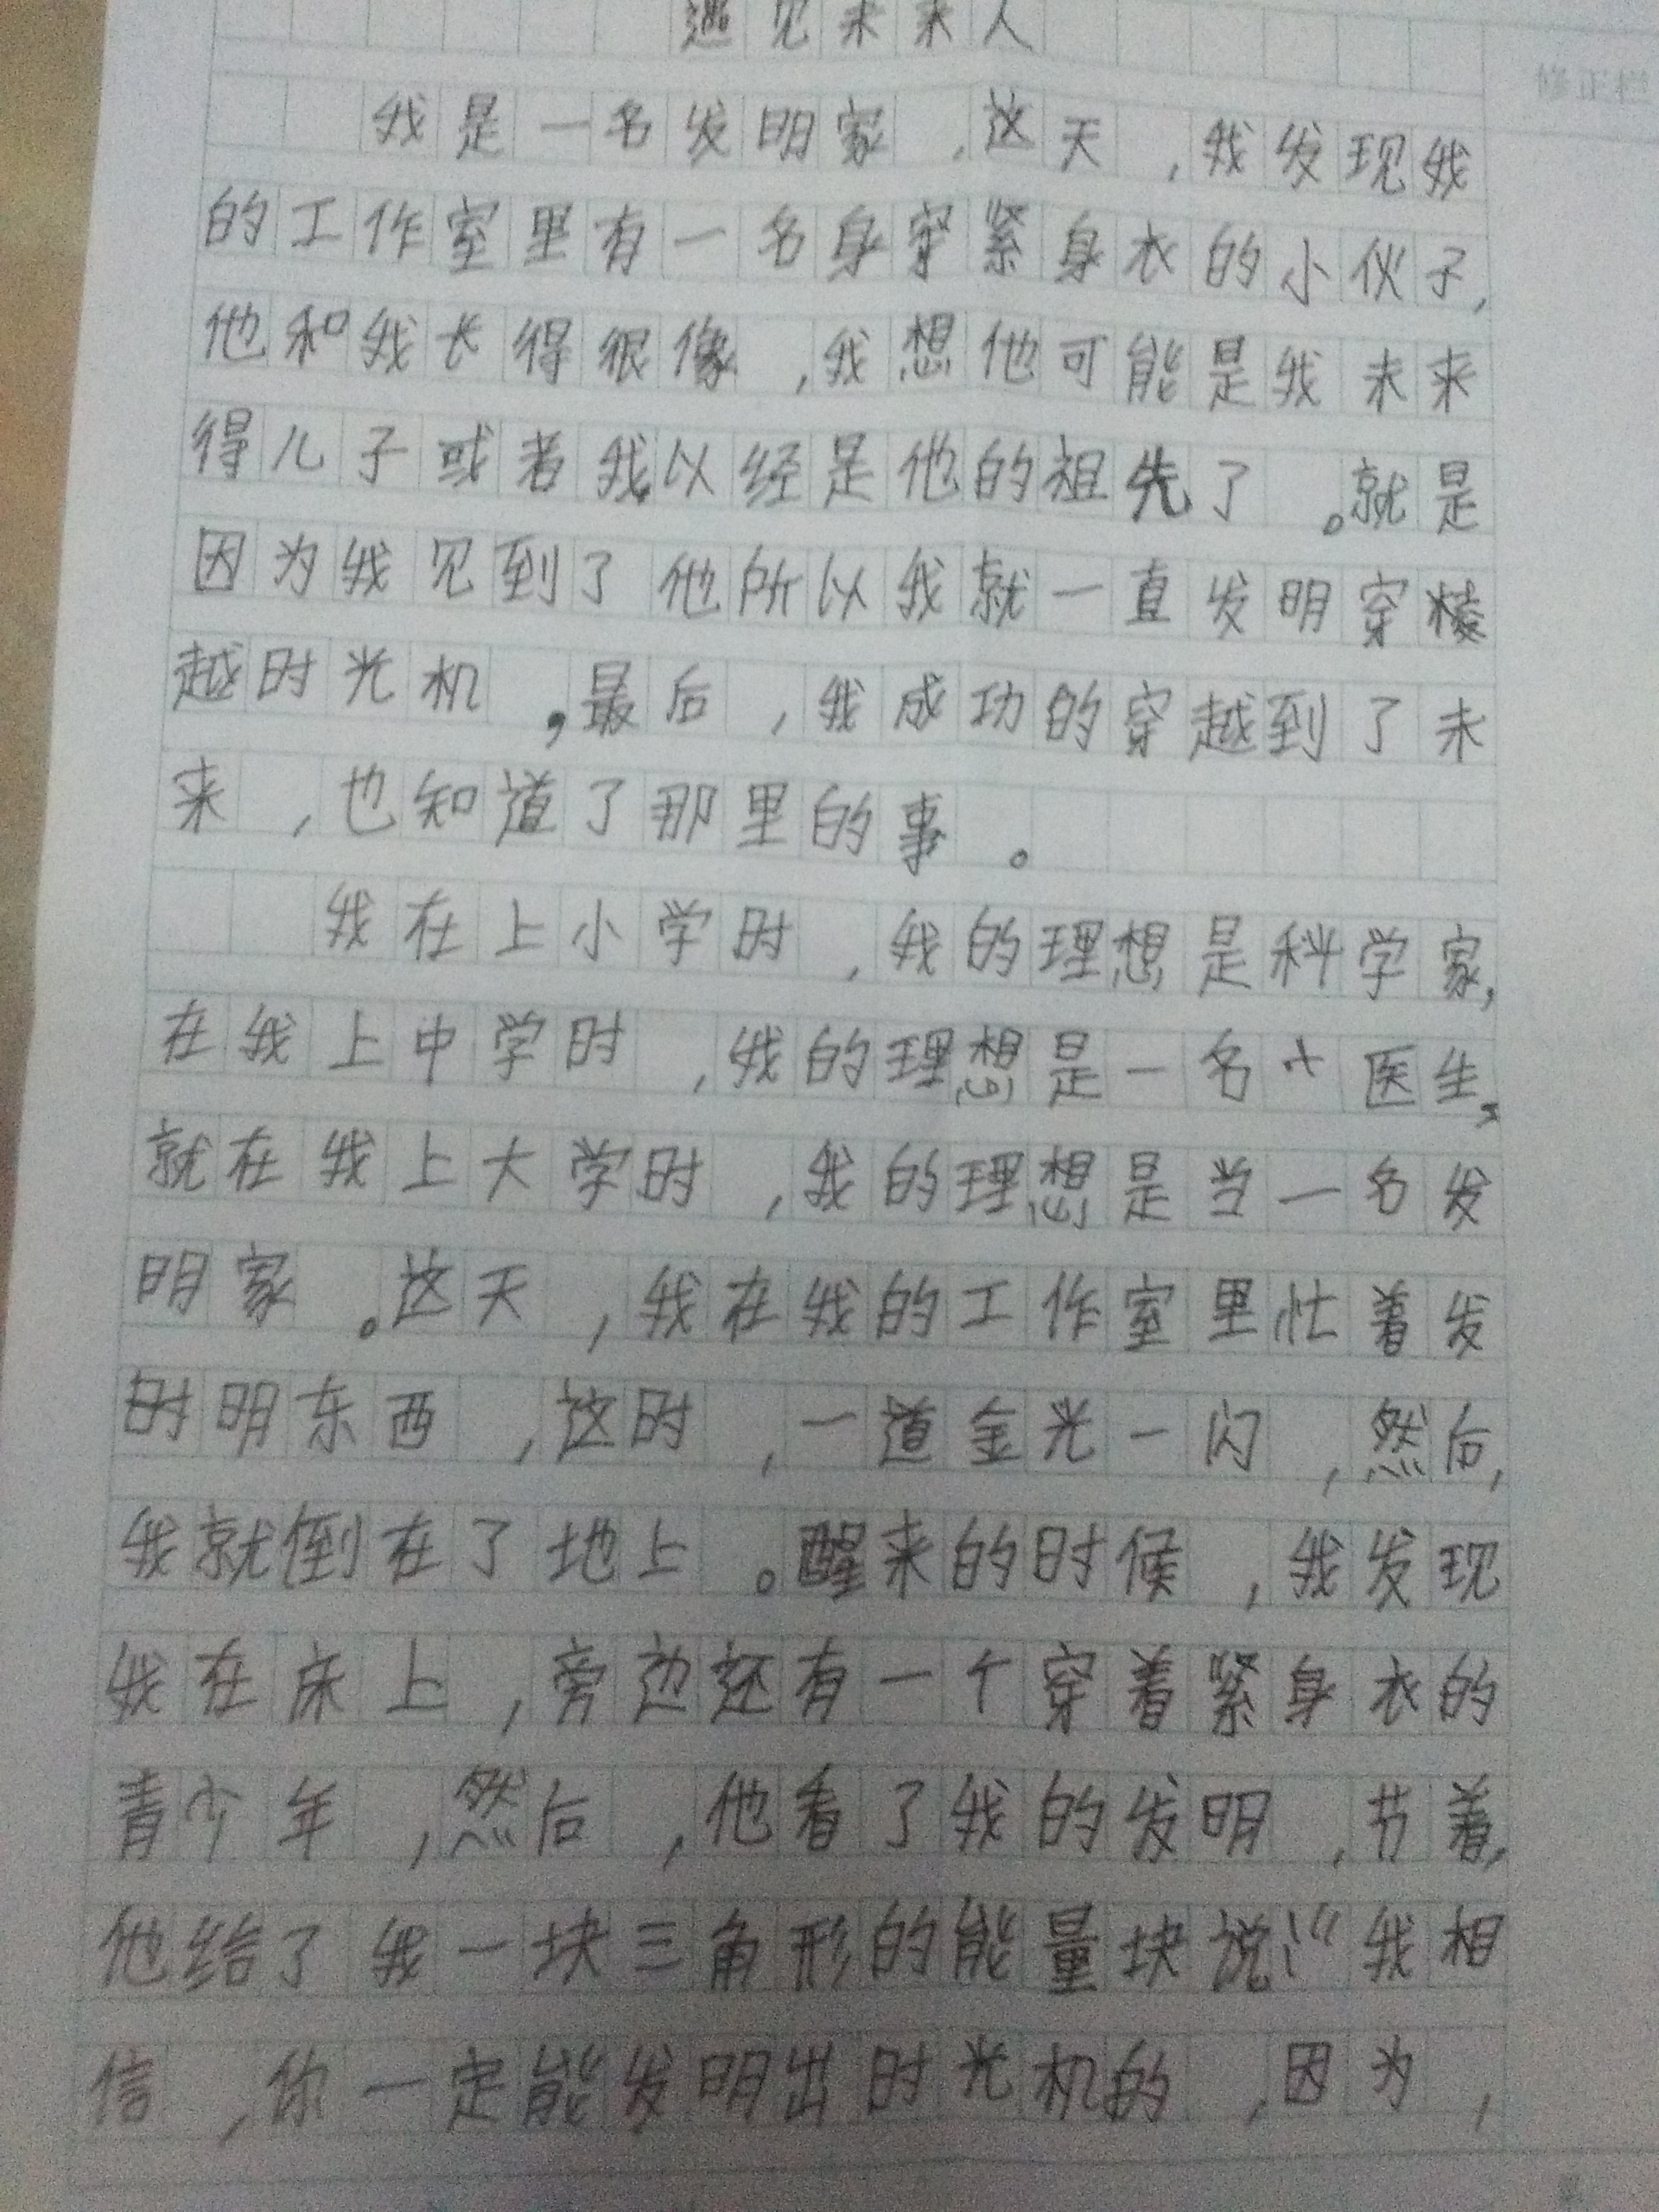 遇见未来人
修正栏
我是一名发明家,这天,我发现我
的工作室里有一名身穿紧身衣的小伙子,
他和我长得很像,我想他可能是我未来
得儿子或者我以经是他的祖先了。就是
因为我见到了他所以我就一直发明穿梭
越时光机,最后,我成功的穿越到了未
来,也知道了那里的事。
我在上小学时,我的理想是科学家,
在我上中学时,我的理想是一名大医生,
就在我上大学时,我的理想是当一名发
明家。这天,我在我的工作室里忙着发
时明东西,这时,一道金光一闪,然后,
我就倒在了地上。醒来的时候,我发现
我在床上,旁边还有一个穿着紧身衣的
青少年,然后,他看了我的发明,节着,
他给了我一块三角形的能量块说:“我相
信,你一定能发明出时光机的,因为,